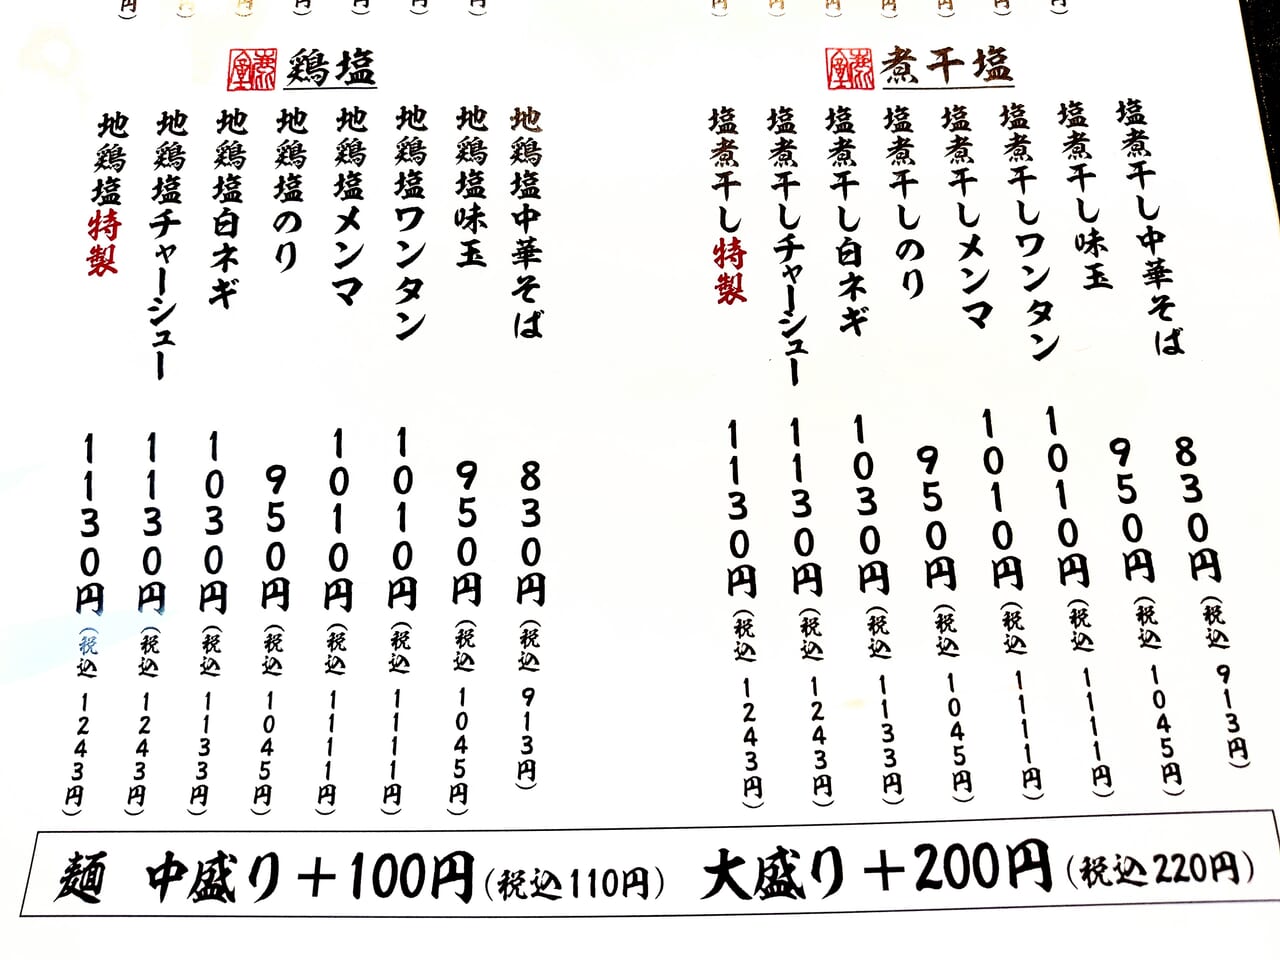 煮干塩
塩煮干し中華そば 830円(税込913円)
塩煮干し味玉 950円(税込1045円)
塩煮干しワンタン 1010円(税込1111円)
塩煮干しメンマ 1010円(税込1111円)
塩煮干しのり 950円(税込1045円)
塩煮干し白ネギ 1030円(税込1133円)
塩煮干しチャーシュー 1130円(税込1243円)
塩煮干し特製 1130円(税込1243円)
鶏塩
地鶏塩中華そば 830円(税込913円)
地鶏塩味玉 950円(税込1045円)
地鶏塩ワンタン 1010円(税込1111円)
地鶏塩メンマ 1010円(税込1111円)
地鶏塩のり 950円(税込1045円)
地鶏塩白ネギ 1030円(税込1133円)
地鶏塩チャーシュー 1130円(税込1243円)
地鶏塩特製 1130円(税込1243円)
麺 中盛り+100円(税込110円) 大盛り+200円(税込220円)